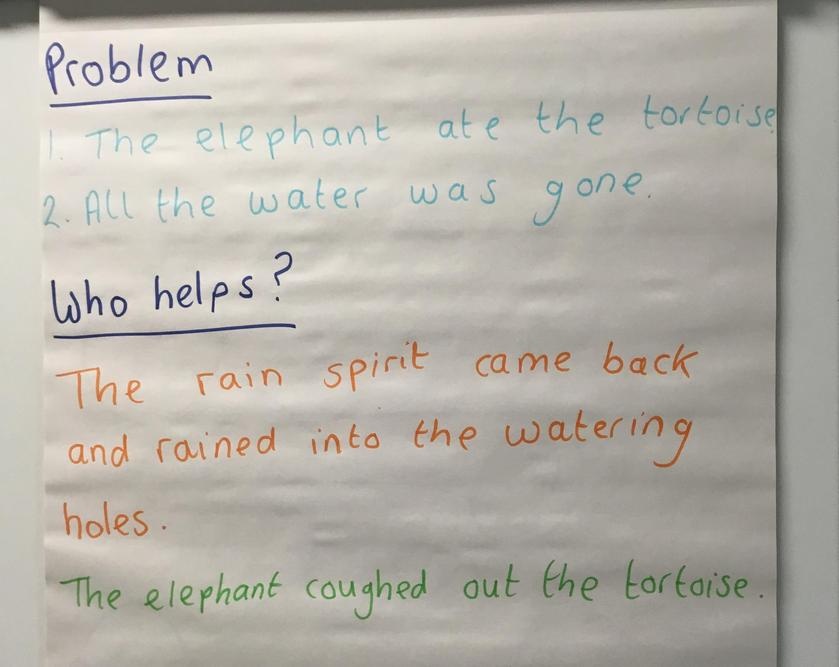 Problem
1. The elephant ate the tortoise
2. All the water was gone.
Who helps?
The rain spirit came back
and rained into the watering
holes.
The elephant coughed out the tortoise.